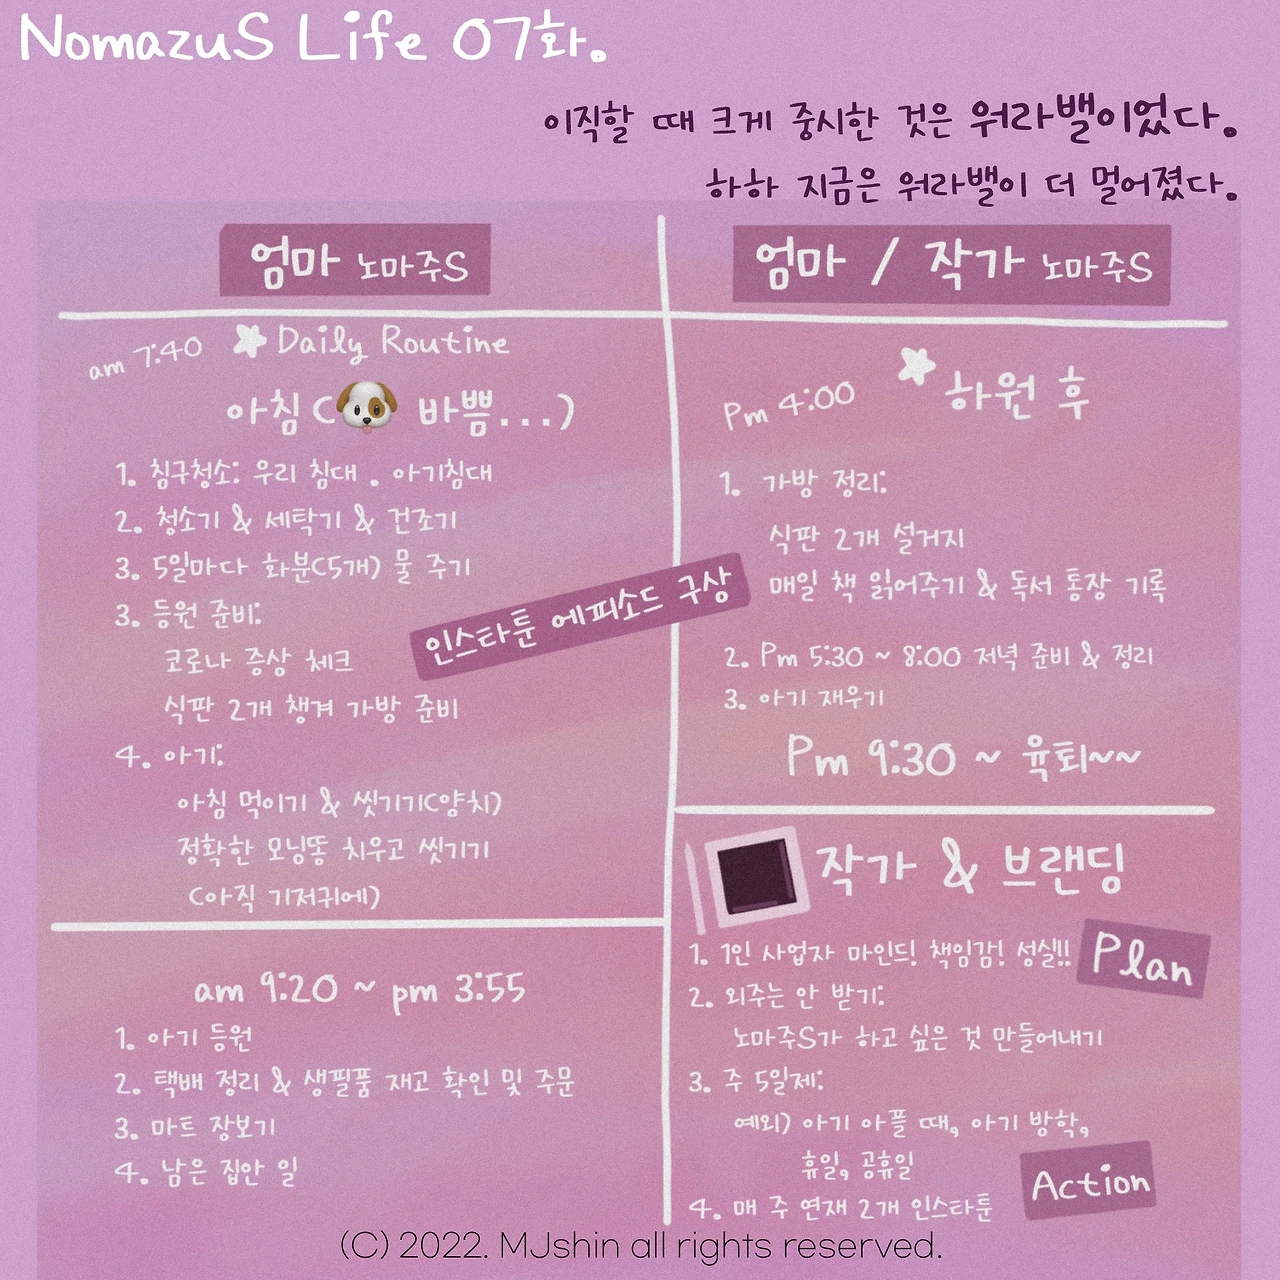 NomazuS Life 07화.
이직할 때 크게 중시한 것은 워라밸이었다.
하하 지금은 워라밸이 더 멀어졌다.
엄마 노마주S
am 7:40 Daily Routine
아침 (바쁨...)
1. 침구청소: 우리 침대 . 아기침대
2. 청소기 & 세탁기 & 건조기
3. 5일마다 화분(5개) 물 주기
3. 등원 준비:
코로나 증상 체크
식판 2개 챙겨 가방 준비
4. 아기:
아침 먹이기 & 씻기기(양치)
정확한 모닝똥 치우고 씻기기
(아직 기저귀에)
인스타툰 에피소드 구상
am 9:20 ~ pm 3:55
1. 아기 등원
2. 택배 정리 & 생필품 재고 확인 및 주문
3. 마트 장보기
4. 남은 집안 일
엄마 / 작가 노마주S
Pm 4:00 하원 후
1. 가방 정리:
식판 2개 설거지
매일 책 읽어주기 & 독서 통장 기록
2. Pm 5:30 ~ 8:00 저녁 준비 & 정리
3. 아기 재우기
Pm 9:30 ~ 육퇴~~
작가 & 브랜딩
1. 1인 사업자 마인드! 책임감! 성실!!
Plan
2. 외주는 안 받기:
노마주S가 하고 싶은 것 만들어내기
3. 주 5일제:
예외) 아기 아플 때, 아기 방학,
휴일, 공휴일
Action
4. 매 주 연재 2개 인스타툰
(C) 2022. MJshin all rights reserved.